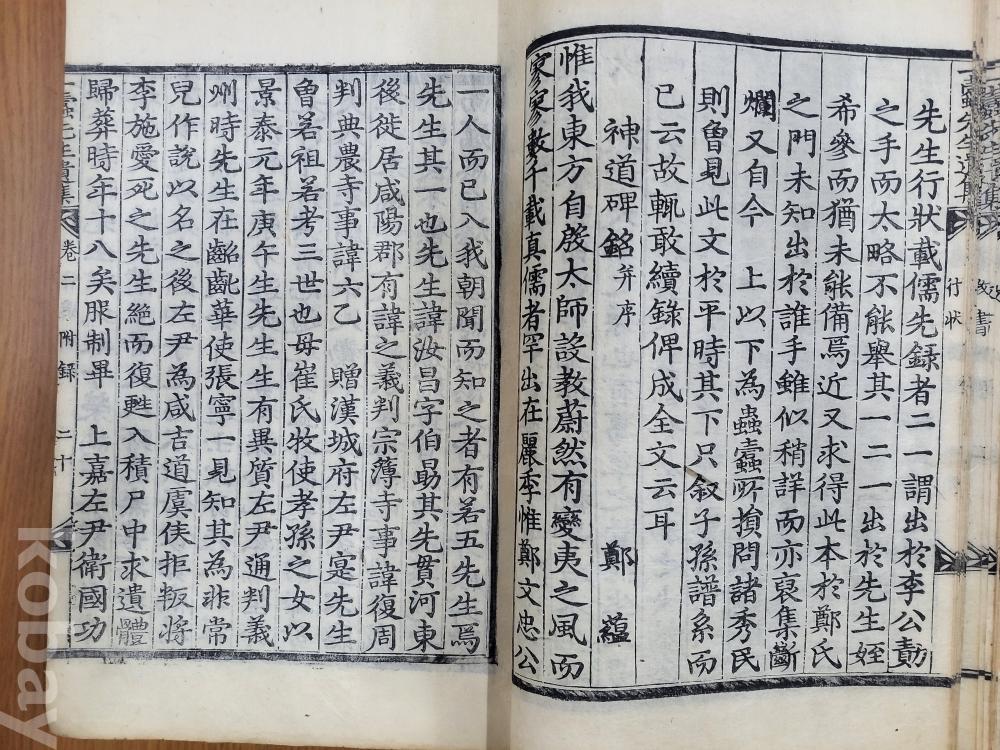 一蠹先生遺集
行狀
先生行狀載儒先録者二一謂出於李公勣
之手而太略不能舉其一二一出於先生姪
希參而猶未能備焉近又求得此本於鄭氏
之門未知出於誰手雖似稍詳而亦裒集斷
爛又自今 上以下為蟲蠹所損問諸秀民
則曾見此文於平時其下只叙子孫譜系而
已云故輒敢續錄俾成全文云耳
神道碑銘并序 鄭蘊
惟我東方自殷太師設教蔚然有變夷之風而
寥寥數千載真儒者罕出在麗季惟鄭文忠公
一人而已入我朝聞而知之者有若五先生焉
先生其一也先生諱汝昌字伯勗其先貫河東
後徙居咸陽郡有諱之義判宗薄寺事諱復周
判典農寺事諱六乙 贈漢城府左尹寔先生
曾若祖若考三世也母崔氏牧使孝孫之女以
景泰元年庚午生先生生有異質左尹通判義
州時先生在齠齔華使張寧一見知其為非常
兒作說以名之後左尹為咸吉道虞侯拒叛將
李施愛死之先生絕而復甦入積尸中求遺體
歸葬時年十八矣服制畢 上嘉左尹衛國功
一蠹先生遺集 卷二 附録 二十
kobay